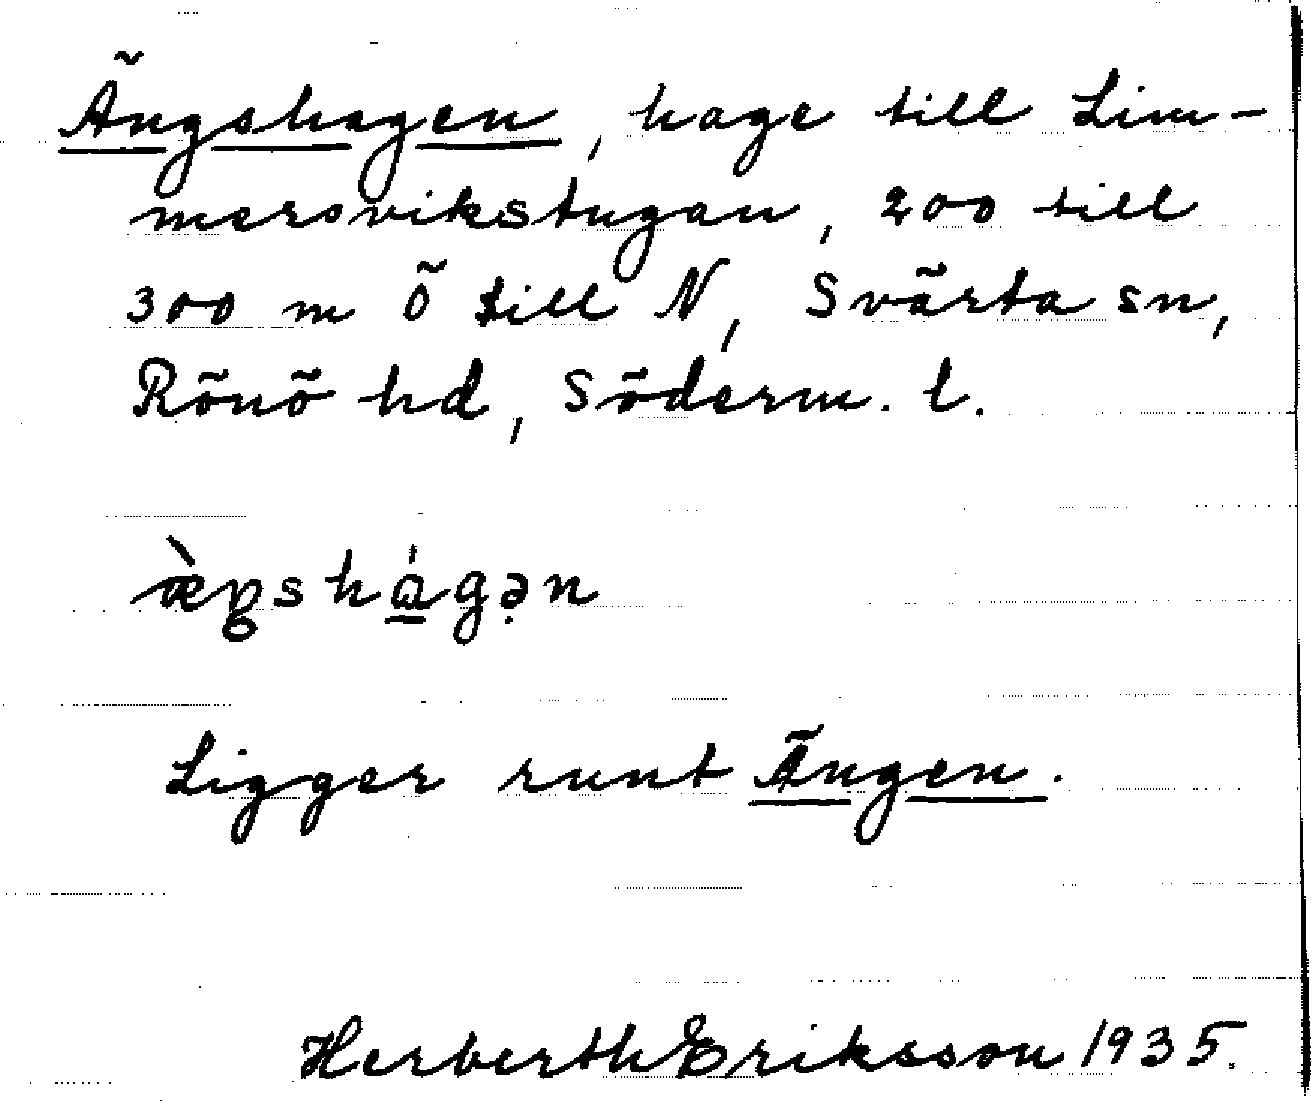 Ängshagen, hage till Lim-
mersvikstugan, 200 till
300 m Ö till N, Svärta sn,
Rönö hd, Söderm. l.
Ligger runt Ängen.
Herberth Eriksson 1935.